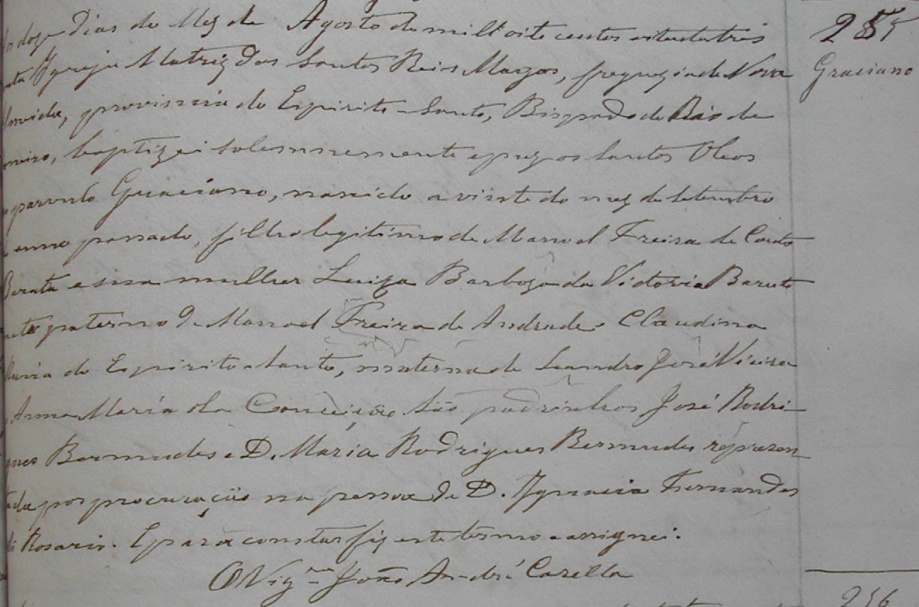 doze dias do Mez de Agosto de mil oito centos oitenta tres
Igreja Matriz dos Santos Reis Magos, freguezia de Nova
provincia do Espirito-Santo, Bispado do Rio de
neiro, baptizei solemnemente e puz os Santos Oleos
parvulo Graciano, nascido a vinte do mez de Setembro
anno passado, filho legitimo de Manoel Freira de Couto
e sua mulher Luiza Barboza da Victoria Baruto
neto paterno de Manoel Freira de Andrade e Claudina
do Espirito Santo, materna de Leandro José Vieira
Anna Maria da Conceição. São padrinhos José Rodri-
gues Bermudes e D. Maria Rodrigues Bermudes represen-
tada por procuração na pessoa de D. Ignacia Fernandes
do Rosario. E para constar fiz este termo e assignei.
O Vigr.º João André Casella
285
Graciano
286